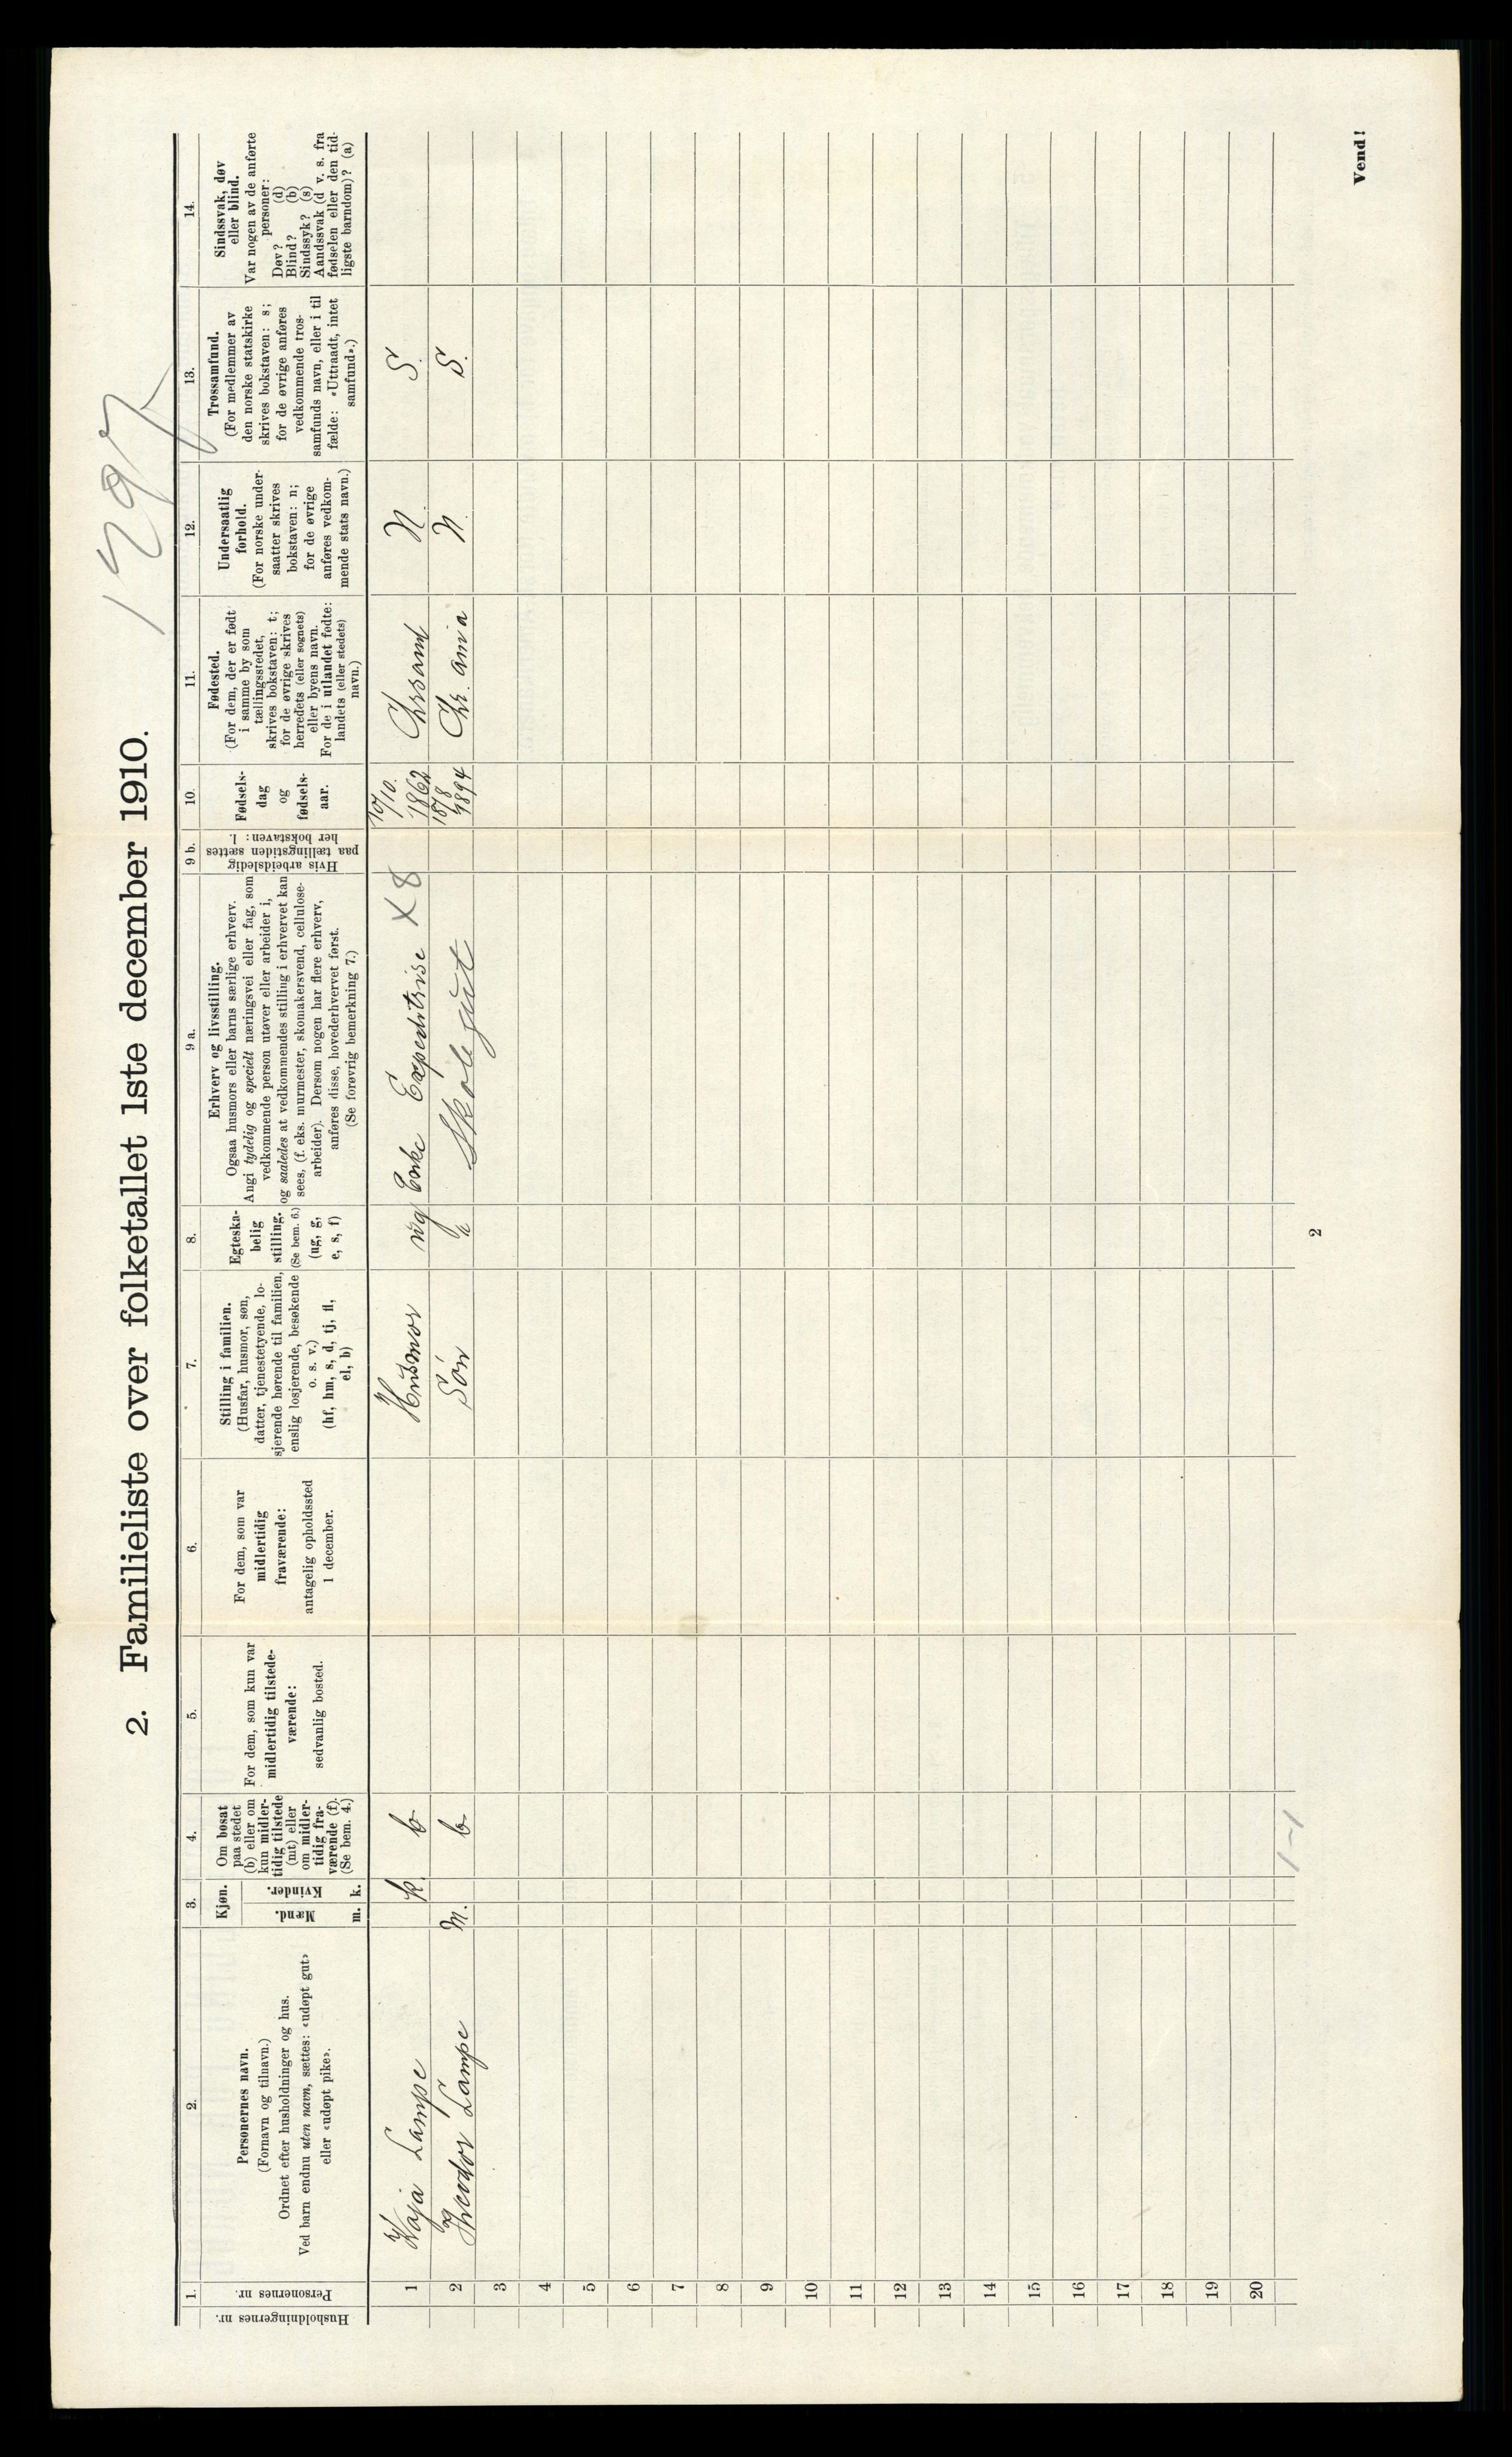 1297
2. Familieliste over folketallet 1ste december 1910.
Husholdningernes nr.
1.
Personernes nr.
2.
Personernes navn.
(Fornavn og tilnavn.)
Ordnet efter husholdninger og hus.
Ved barn endnu uten navn, sættes: «udøpt gut»
eller «udøpt pike».
3.
Kjøn.
Mænd.
Kvinder.
m. k.
4.
Om bosat
paa stedet
(b) eller om
kun midler-
tidig tilstede
(mt) eller
om midler-
tidig fra-
værende (f).
(Se bem. 4.)
5.
For dem, som kun var
midlertidig tilstede-
værende:
sedvanlig bosted.
6.
For dem, som var
midlertidig
fraværende:
antagelig opholdssted
1 december.
7.
Stilling i familien.
(Husfar, husmor, søn,
datter, tjenestetyende, lo-
sjerende hørende til familien,
enslig losjerende, besøkende
o. s. v.)
(hf, hm, s, d, tj, fl,
el, b)
8.
Egteska-
belig
stilling.
(Se bem. 6.)
(ug, g,
e, s, f)
9 a.
Erhverv og livsstilling.
Ogsaa husmors eller barns særlige erhverv.
Angi tydelig og specielt næringsvei eller fag, som
vedkommende person utøver eller arbeider i,
og saaledes at vedkommendes stilling i erhvervet kan
sees, (f. eks. murmester, skomakersvend, cellulose-
arbeider). Dersom nogen har flere erhverv,
anføres disse, hovederhvervet først.
(Se forøvrig bemerkning 7.)
9 b.
Hvis arbeidsledig
paa tællingstiden sættes
her bokstaven: l.
10.
Fødsels-
dag
og
fødsels-
aar.
11.
Fødested.
(For dem, der er født
i samme by som
tællingsstedet,
skrives bokstaven: t;
for de øvrige skrives
herredets (eller sognets)
eller byens navn.
For de i utlandet fødte:
landets (eller stedets)
navn.)
12.
Undersaatlig
forhold.
(For norske under-
saatter skrives
bokstaven: n;
for de øvrige
anføres vedkom-
mende stats navn.)
13.
Trossamfund.
(For medlemmer av
den norske statskirke
skrives bokstaven: s;
for de øvrige anføres
vedkommende tros-
samfunds navn, eller i til
fælde: «Uttraadt, intet
samfund».)
14.
Sindssvak, døv
eller blind.
Var nogen av de anførte
personer:
Døv? (d)
Blind? (b)
Sindssyk? (s)
Aandssvak (d v. s. fra
fødselen eller den tid-
ligste barndom)? (a)
1 Kaja Lampe k. b Husmor Enke Expeditrise X 8 10/10. 1862 Chrsand N. S.
2 Theodor Lampe m. b Sön Skolegut 1894 Chr.ania N. S.
3
4
5
6
7
8
9
10
11
12
13
14
15
16
17
18
19
20
1-1
2
Vend!